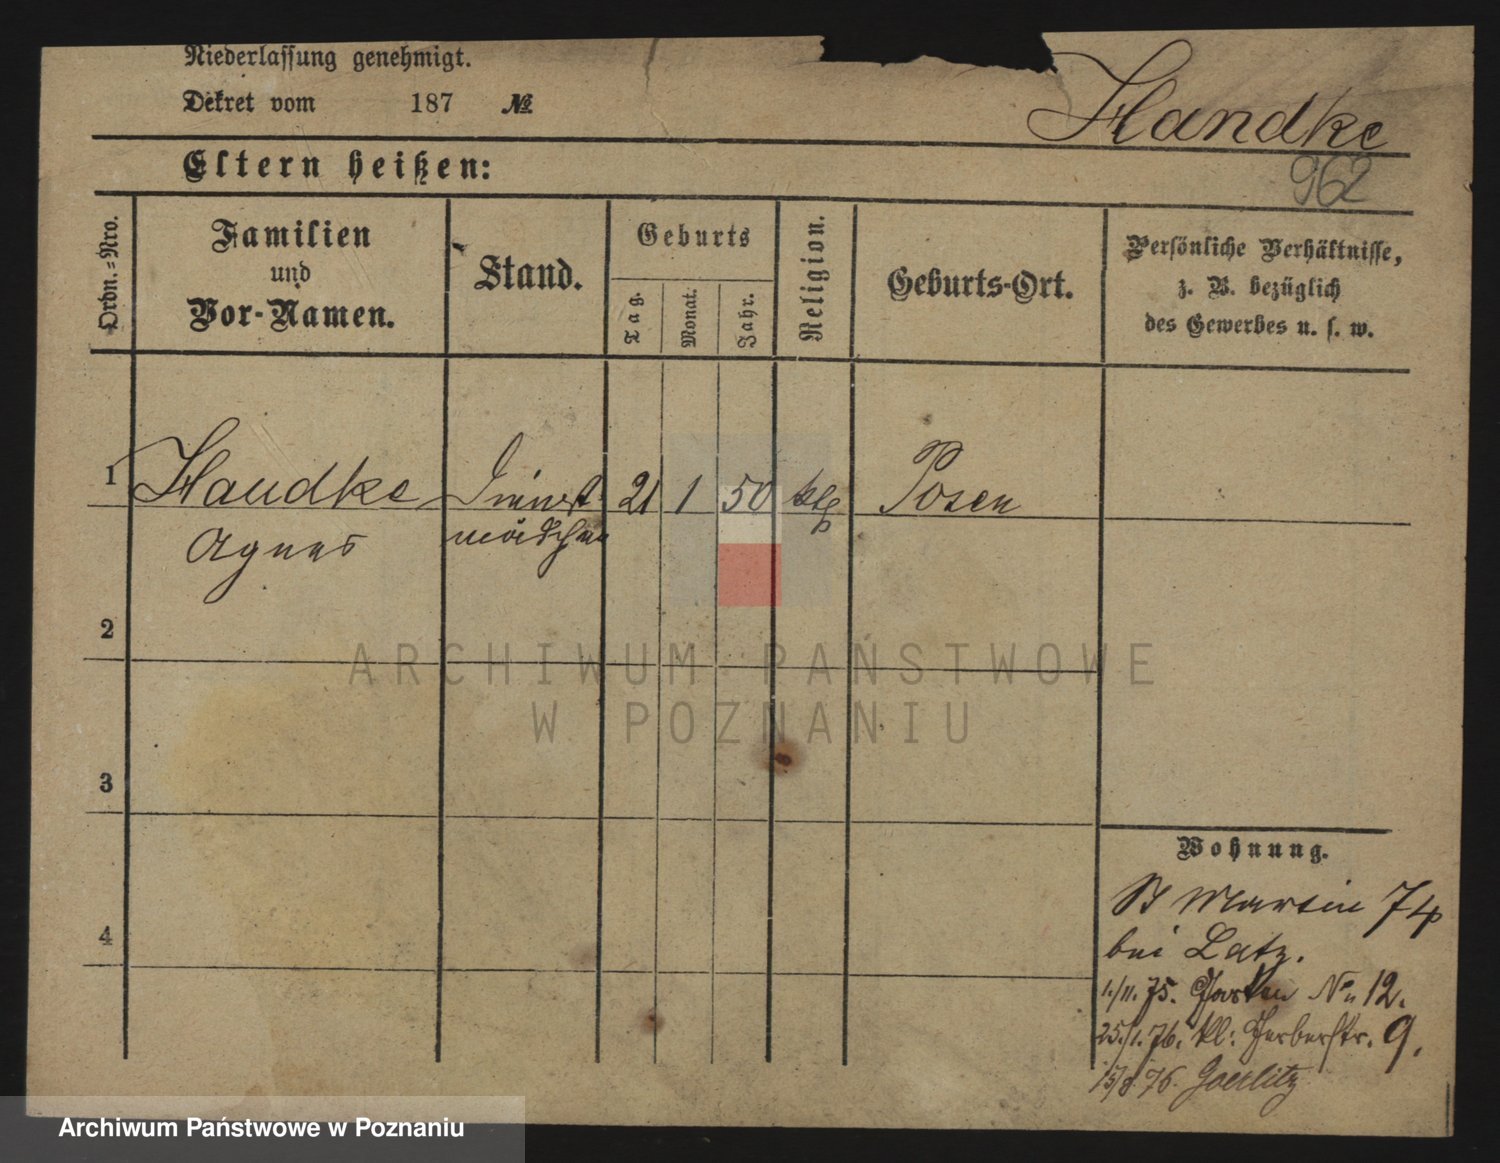 Niederlassung genehmigt.
Dekret vom 187 №
Handke
962
Eltern heißen:
Ordn.=Nro.
Familien
und
Vor-Namen.
Stand.
Geburts
Tag.
Monat.
Jahr.
Religion.
Geburts-Ort.
Persönliche Verhältnisse,
z. B. bezüglich
des Gewerbes u. s. w.
1 Handke Dienst 21 1 50 kth Posen
Agnes mädchen
2
3
4
ARCHIWUM PAŃSTWOWE
W POZNANIU
Wohnung.
St Martin 74
bei Latz.
1./11. 75. Garten No 12.
25./1. 76. kl: Gerberstr. 9.
15/8 76. Goerlitz
Archiwum Państwowe w Poznaniu